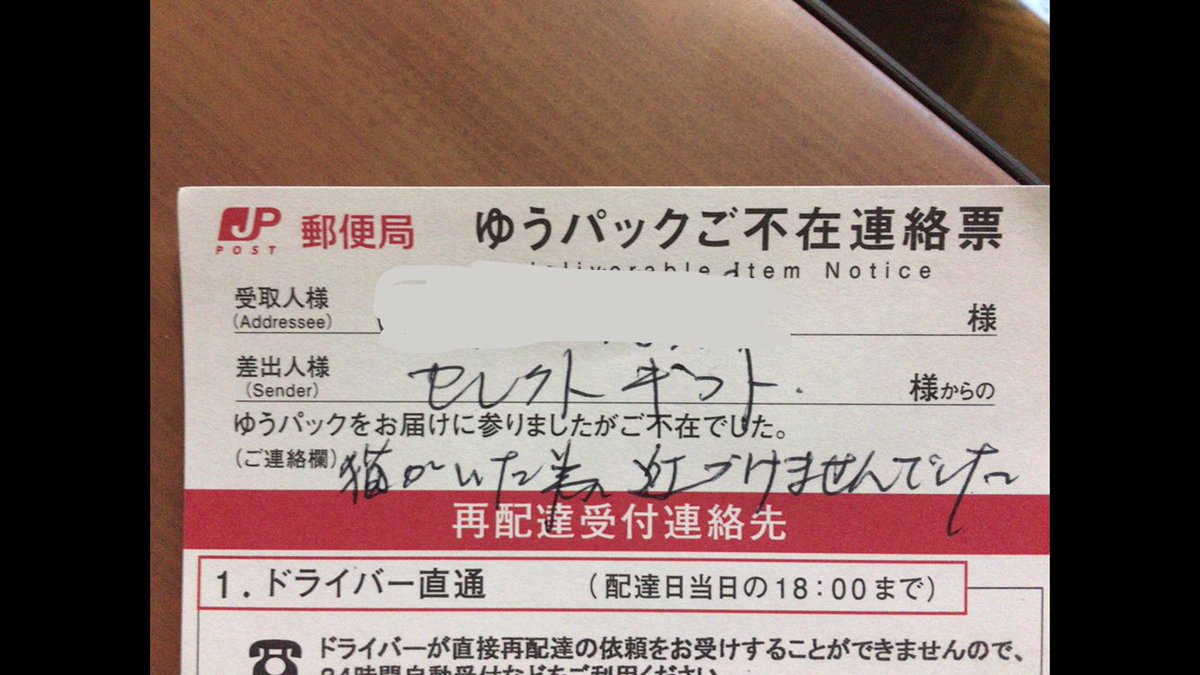 JP POST 郵便局 ゆうパックご不在連絡票
Item Notice
受取人様
(Addressee) 様
差出人様
(Sender) セレクトギフト. 様からの
ゆうパックをお届けに参りましたがご不在でした。
(ご連絡欄) 猫がいた為 近づけませんでした
再配達受付連絡先
1.ドライバー直通 (配達日当日の18:00まで)
ドライバーが直接再配達の依頼をお受けすることができませんので、
24時間自動受付などをご利用ください。